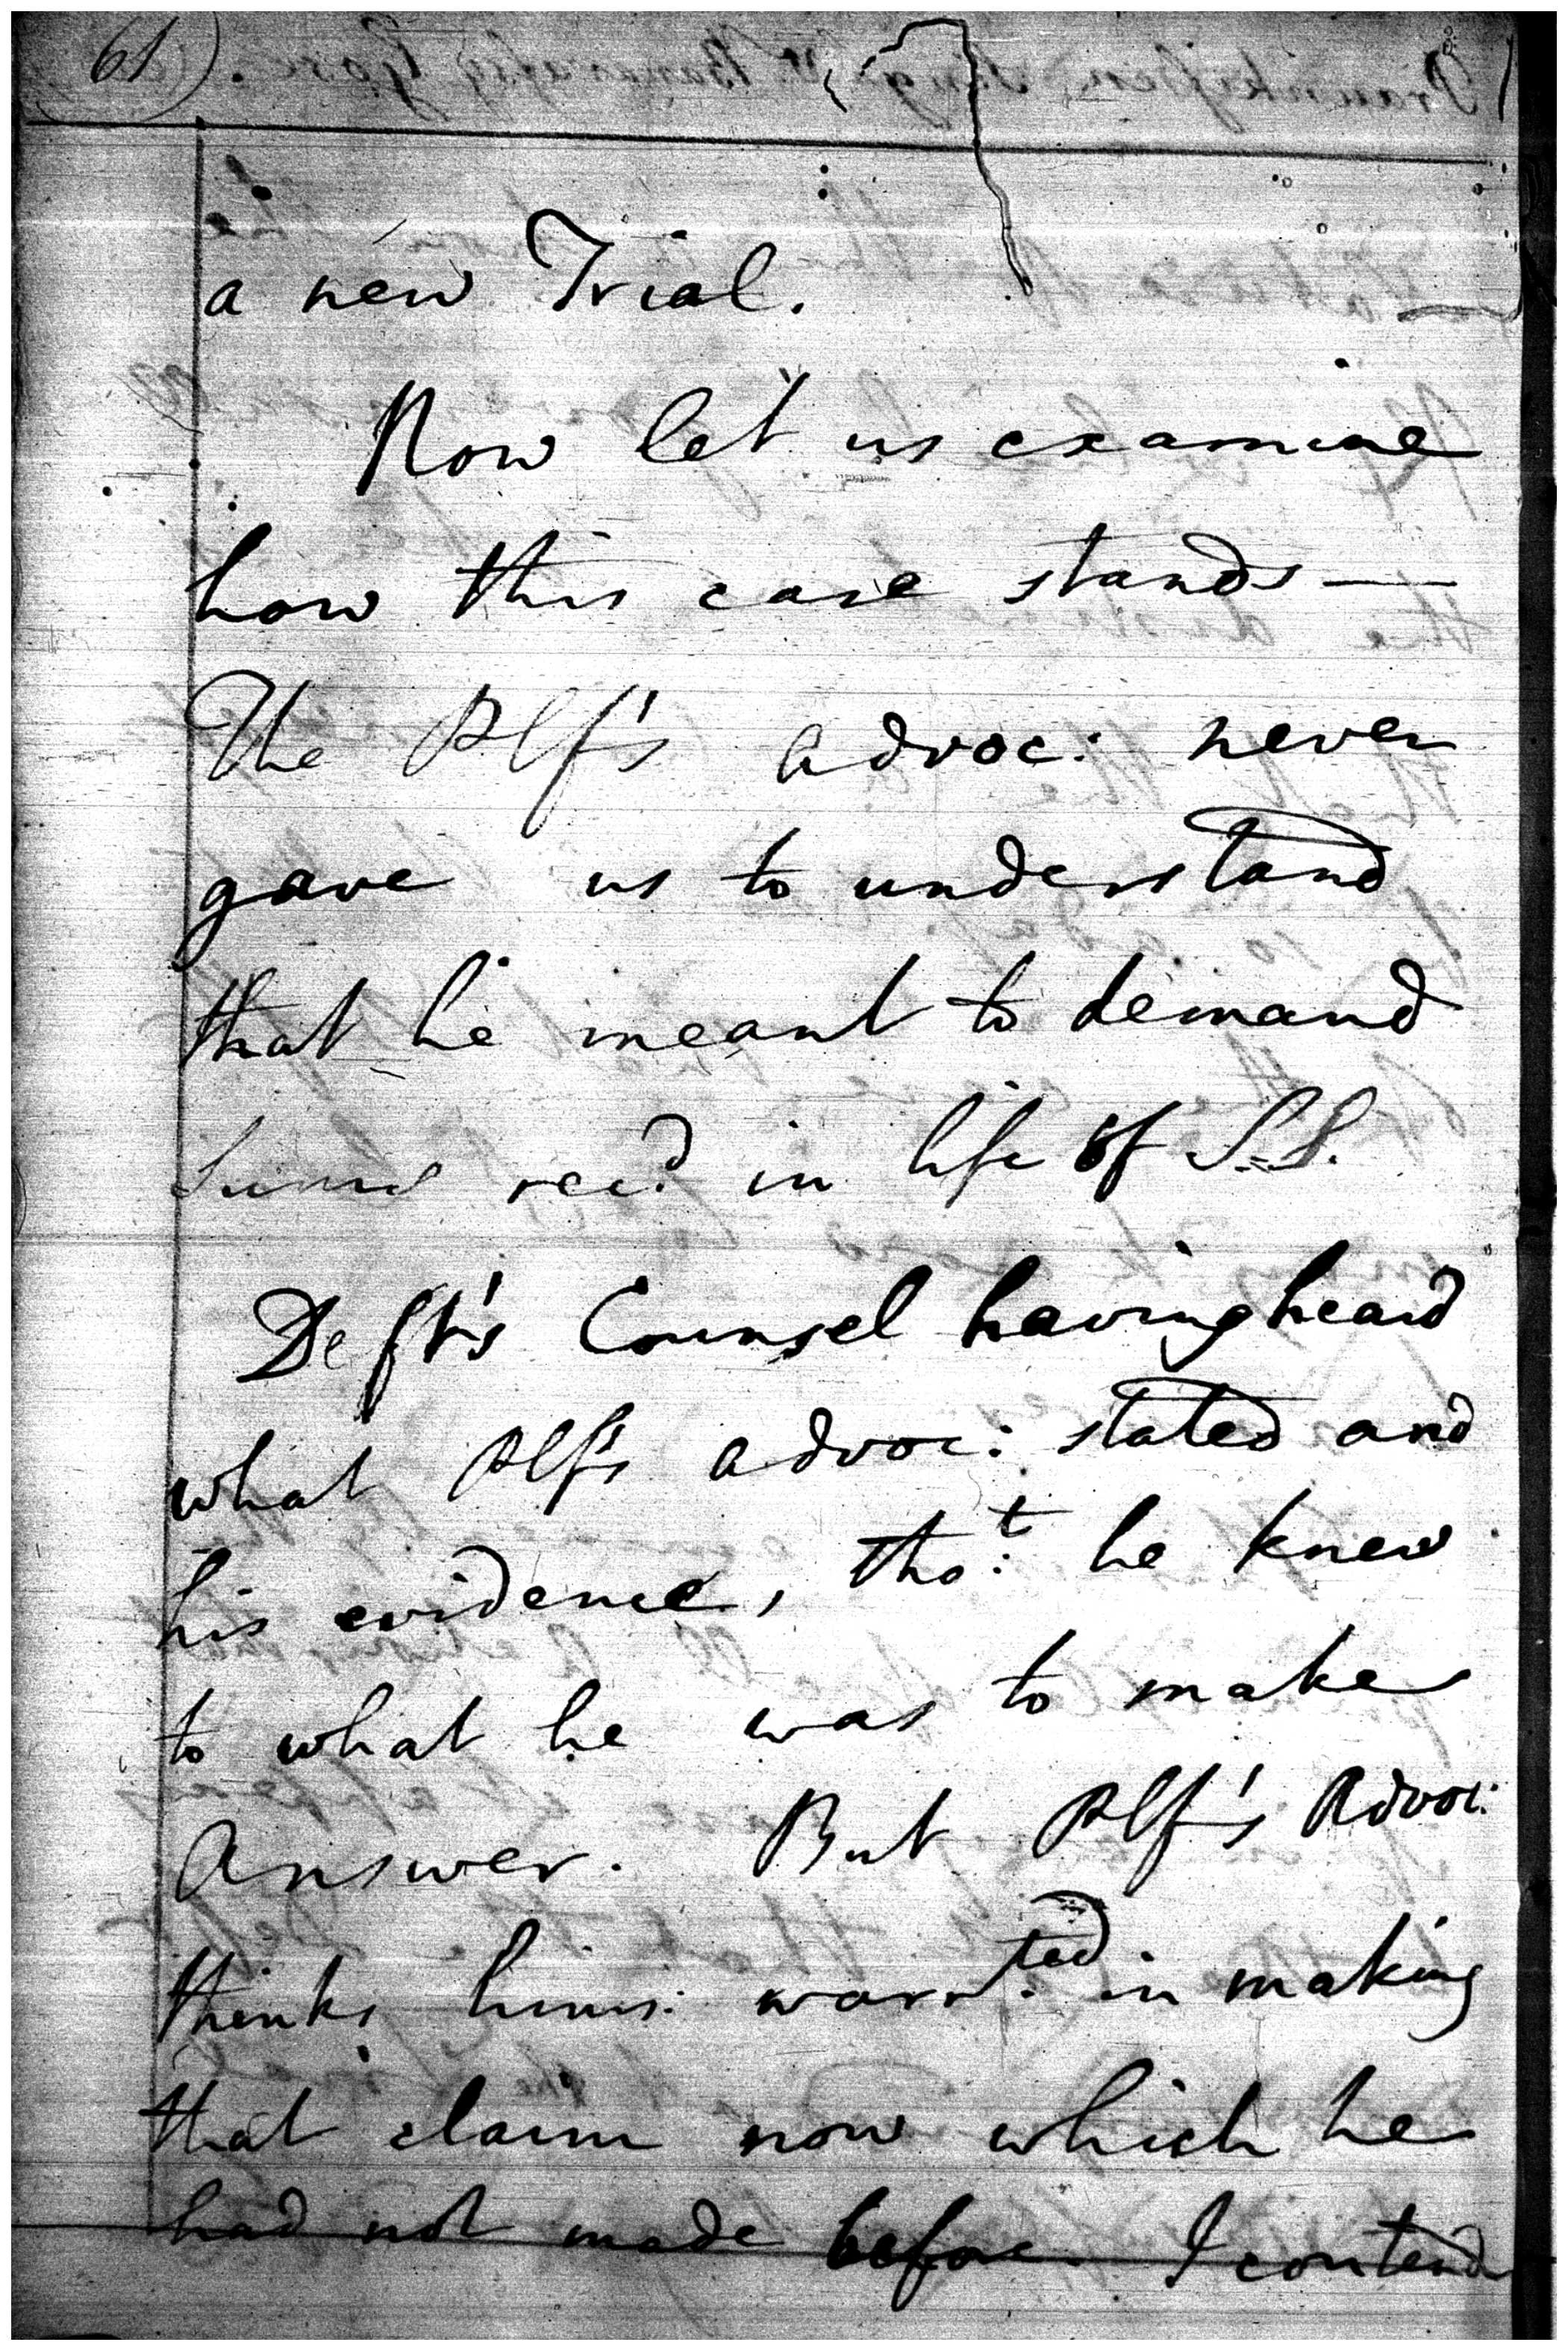 61)
a new Trial.
Now let us examine
how this case stands —
The Plf's advoc: never
gave us to understand
that he meant to demand
sums rec.d in life of S.S.
Deft's Counsel having heard
what Plf's advoc: stated and
his evidence, tho:t he knew
to what he was to make
answer. But Plf's Advoc:
thinks hims: warr:ted in making
that claim now which he
had not made before. I contend